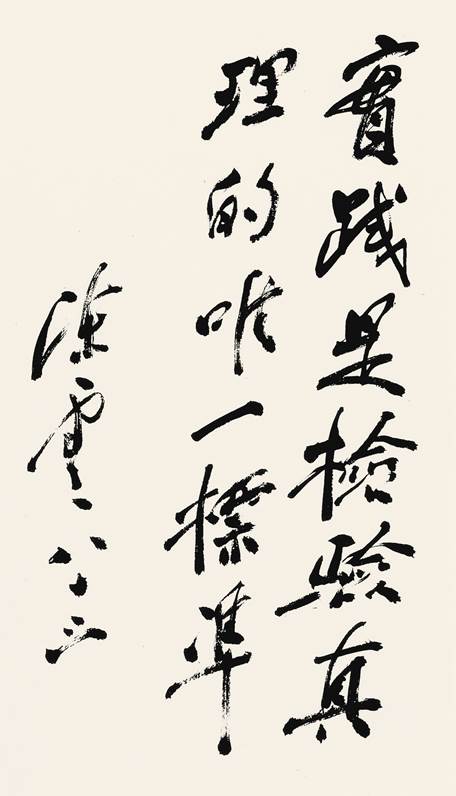 實践是檢驗真
理的唯一標準
陳雲 八十三